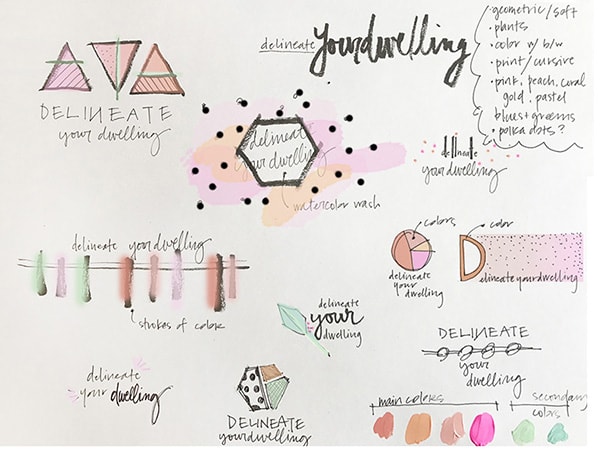 delineate yourdwelling
• geometric/soft
• plants
• color w/ b/w
• print/cursive
• pink, peach, coral
gold, pastel
blues + greens
• polka dots?
DELINEATE
your dwelling
delineate
your dwelling
watercolor wash
delineate
your dwelling
delineate your dwelling
strokes of color
colors
delineate
your
dwelling
color
D
elineate yourdwelling
delineate
your
dwelling
DELINEATE
your
dwelling
delineate
your dwelling
DELINEATE
yourdwelling
main colors
secondary
colors